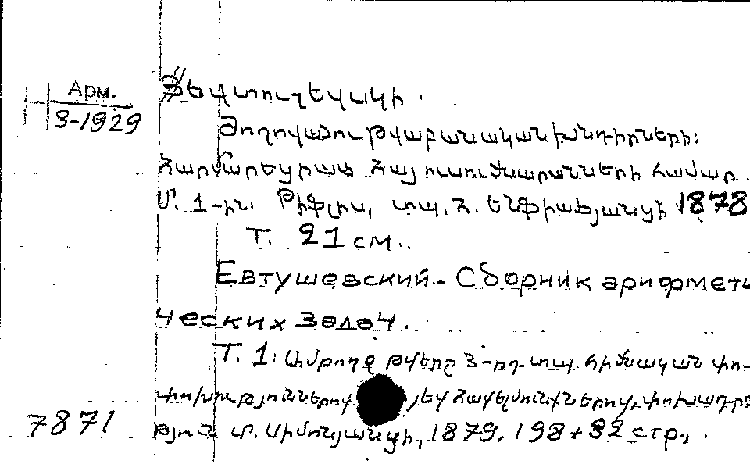 Арм.
3-1929
Յեվտուշեվսկի.
Ժողովածու թվաբանական խնդիրների:
Հարմարեցրած հայ ուսումնարանների համար.
Մ. 1-ին: Թիֆլիս, տպ. Հ. Ենֆիաճյանցի 1878
Т. 21 см.
Евтушевский - Сборник арифмети-
ческих задач.
Т. 1: Ամբողջ թվեր: 3-րդ տպ. հիմնական փո-
փոխություններով յեվ հավելմունքներով, փոխադր
7871 Ս. Սիմոնյանցի, 1879. 198 + 32 стр.